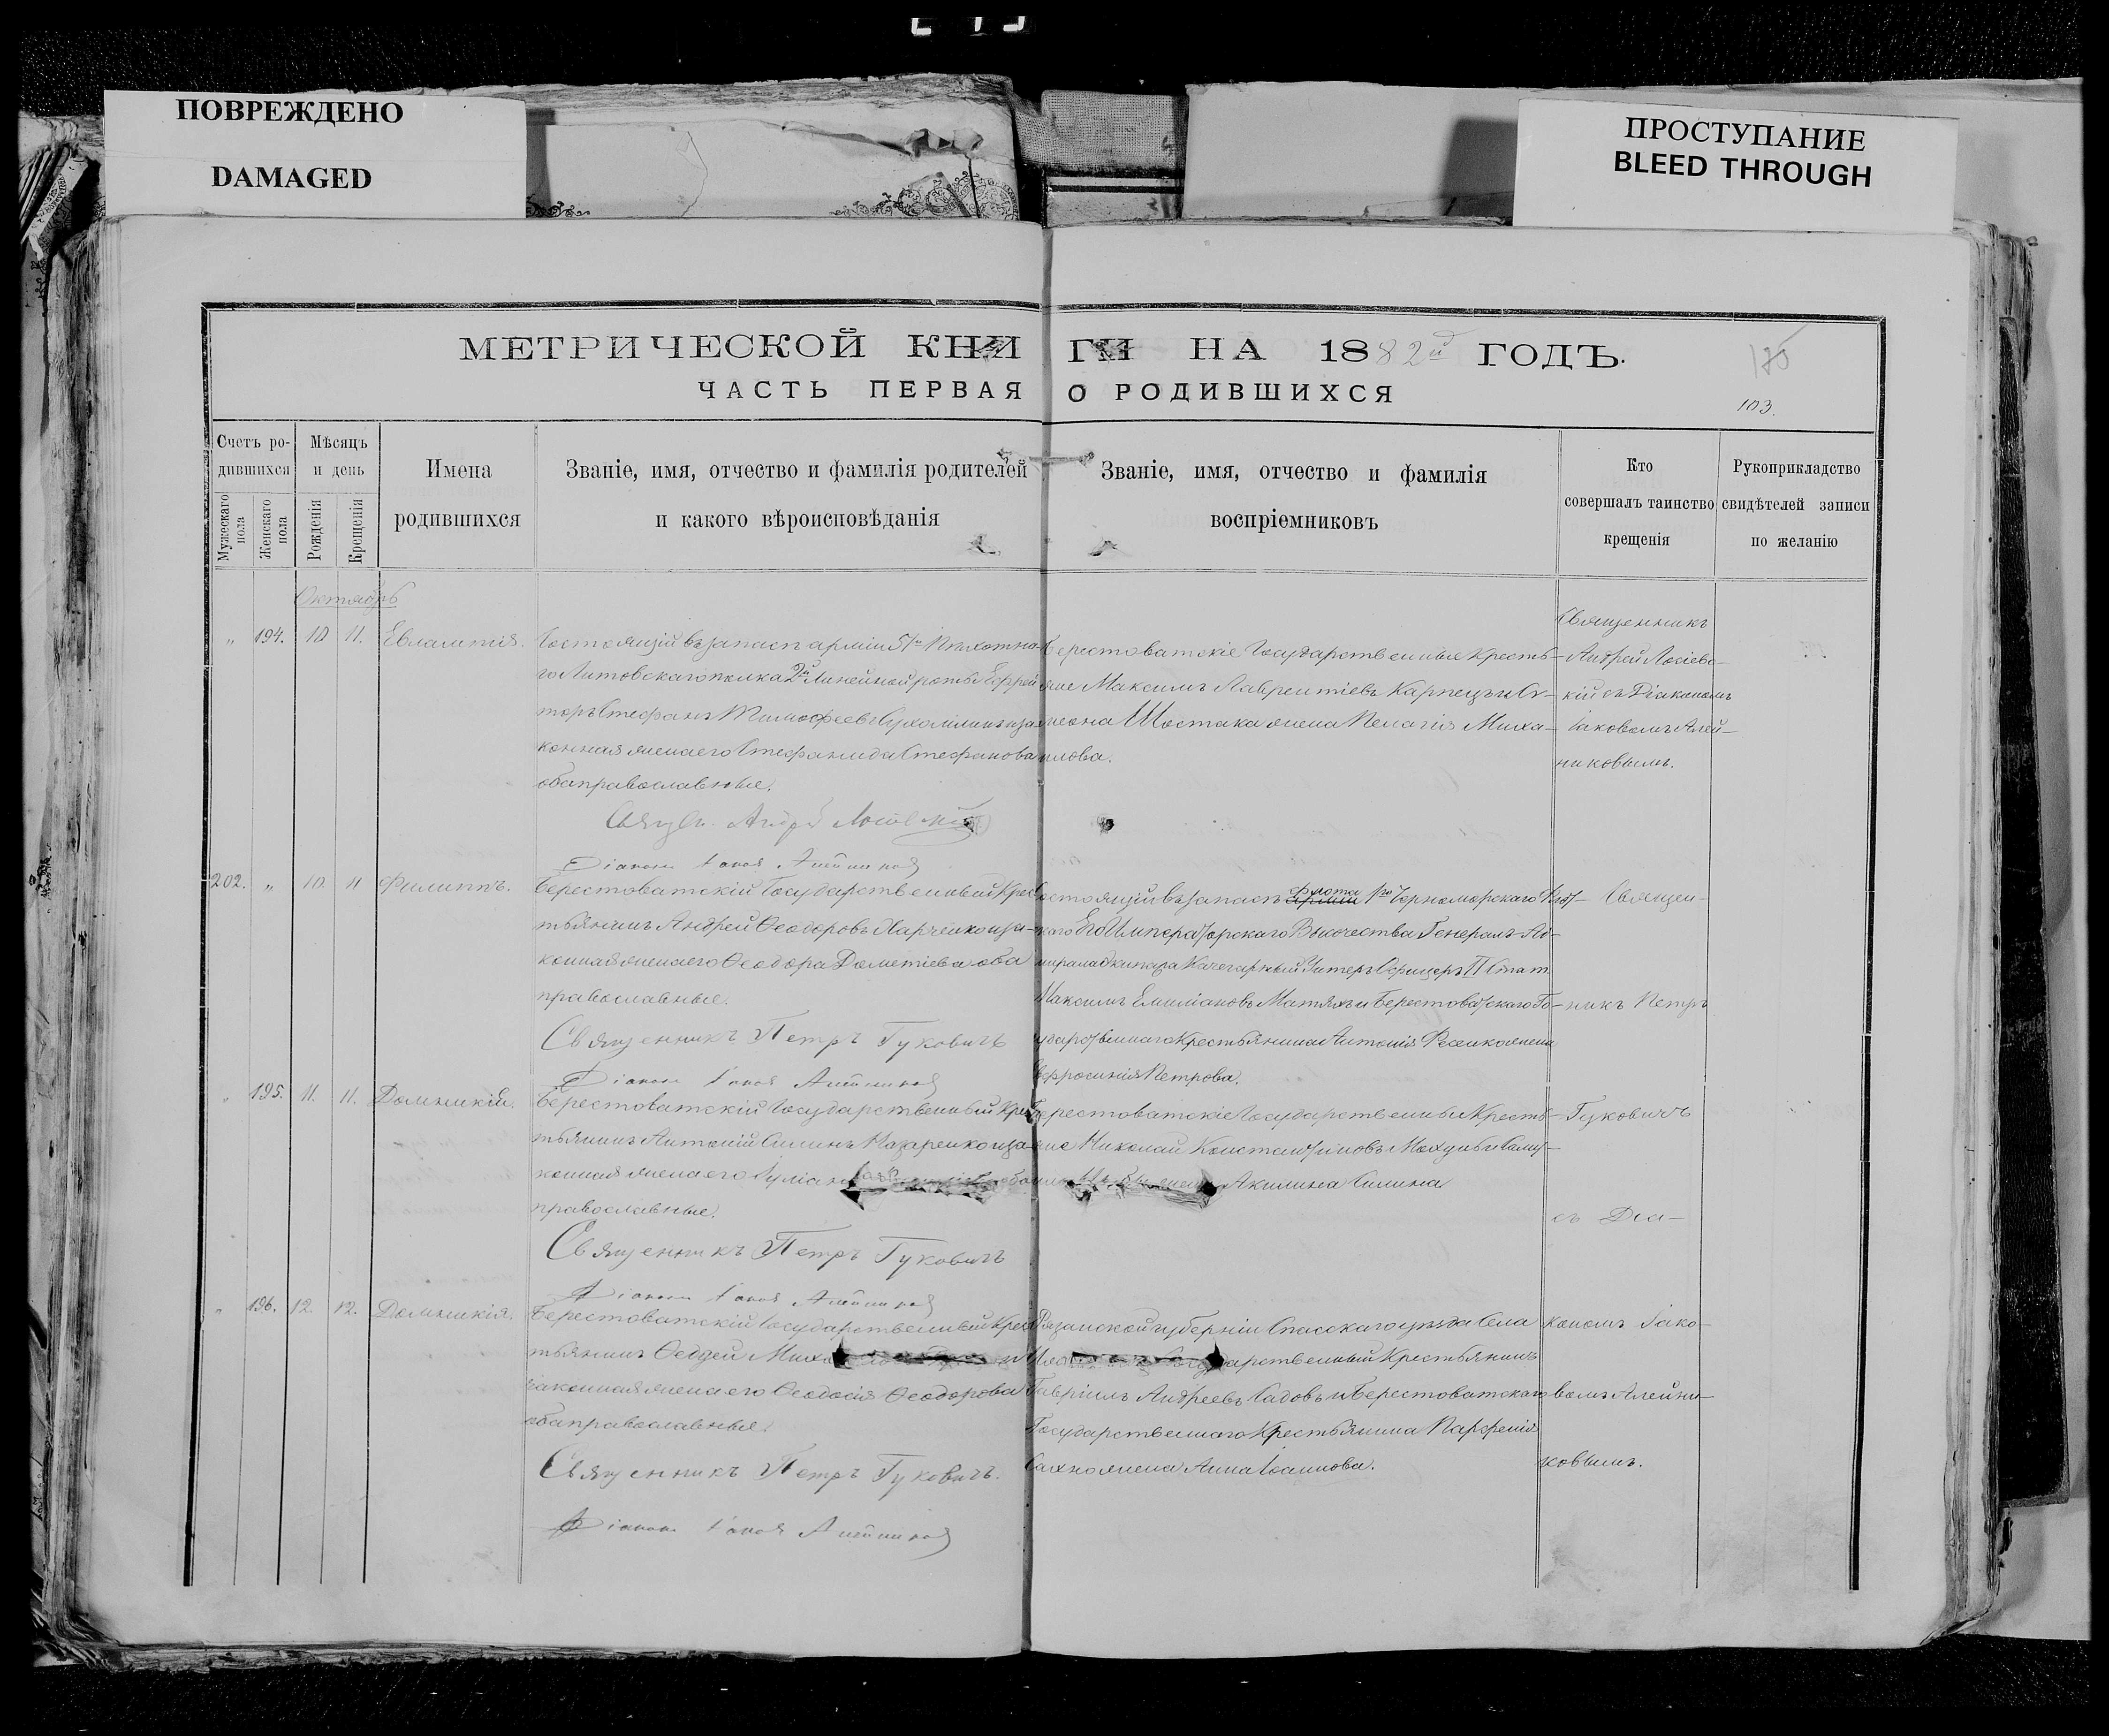 ПОВРЕЖДЕНО
DAMAGED
ПРОСТУПАНИЕ
BLEED THROUGH
МЕТРИЧЕСКОЙ КНИГИ НА 1882й ГОДЪ.
ЧАСТЬ ПЕРВАЯ О РОДИВШИХСЯ
103.
Счетъ ро-
дившихся
Мужескаго пола
Женскаго пола
Мѣсяцъ
и день
Рожденія
Крещенія
Имена
родившихся
Званіе, имя, отчество и фамилія родителей
и какого вѣроисповѣданія
Званіе, имя, отчество и фамилія
воспріемниковъ
Кто
совершалъ таинство
крещенія
Рукоприкладство
свидѣтелей записи
по желанію
Октябрь
„ 194. 10 11. Евлампія.
Состоящій въ запасѣ арміи 51го Пѣхотна-
го Литовскаго полка 2й Линейной роты Ефрей
торъ Стефанъ Тимофеевъ и за
конная жена его Стефанида Стефанова
оба православные.
Діаконъ Іаковъ Алейниковъ
Берестоватскіе Государственные Кресть-
яне Максимъ Лаврентіевъ Карпецъ и
Шостака жена Пелагія Миха-
илова.
Священникъ
Андрей
кій съ Діакономъ
Іаковомъ Алей-
никовымъ.
202. „ 10. 11 Филиппъ.
Берестоватскій Государственный Крес
тьянинъ Андрей Ѳеодоровъ Харченко и за-
конная жена его Ѳеодора Дометіева оба
православные.
Священникъ Петръ Гуковичъ
Діаконъ Іаковъ Алейниковъ
Состоящій въ запасѣ флота 1го Черноморскаго
Его Императорскаго Высочества Генералъ-Ад-
мирала экипажа Кочегарный Унтеръ Офицеръ
Максимъ Емиліановъ и Берестоватскаго Го-
сударственнаго Крестьянина Антонія жена
Евфросинія Петрова.
Священ-
никъ Петръ
„ 195. 11. 11. Домникія.
Берестоватскій Государственный Крес
тьянинъ Антоній Силинъ Назаренко и за-
конная жена его оба
православные.
Священникъ Петръ Гуковичъ
Діаконъ Іаковъ Алейниковъ
Берестоватскіе Государственные Кресть-
яне Николай Константиновъ и
жена Акилина Силина
Гуковичъ
съ Діа-
„ 196. 12. 12. Домникія.
Берестоватскій Государственный Крес
тьянинъ Ѳеодосія Ѳеодорова
законная жена его
оба православные.
Священникъ Петръ Гуковичъ.
Діаконъ Іаковъ Алейниковъ
Рязанской губерніи Спасскаго уѣзда Села
Государственный Крестьянинъ
Гавріилъ Андреевъ Садовъ и Берестоватскаго
Государственнаго Крестьянина Парфенія
Сахно жена Анна Іоаннова.
кономъ Іако-
вомъ Алейни-
ковымъ.